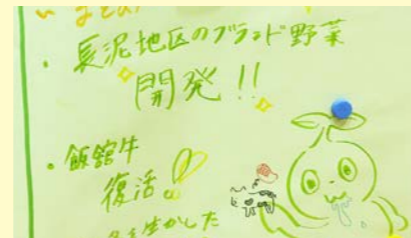 ・長泥地区のブランド野菜
開発!!
・飯舘牛
復活!!
生かした